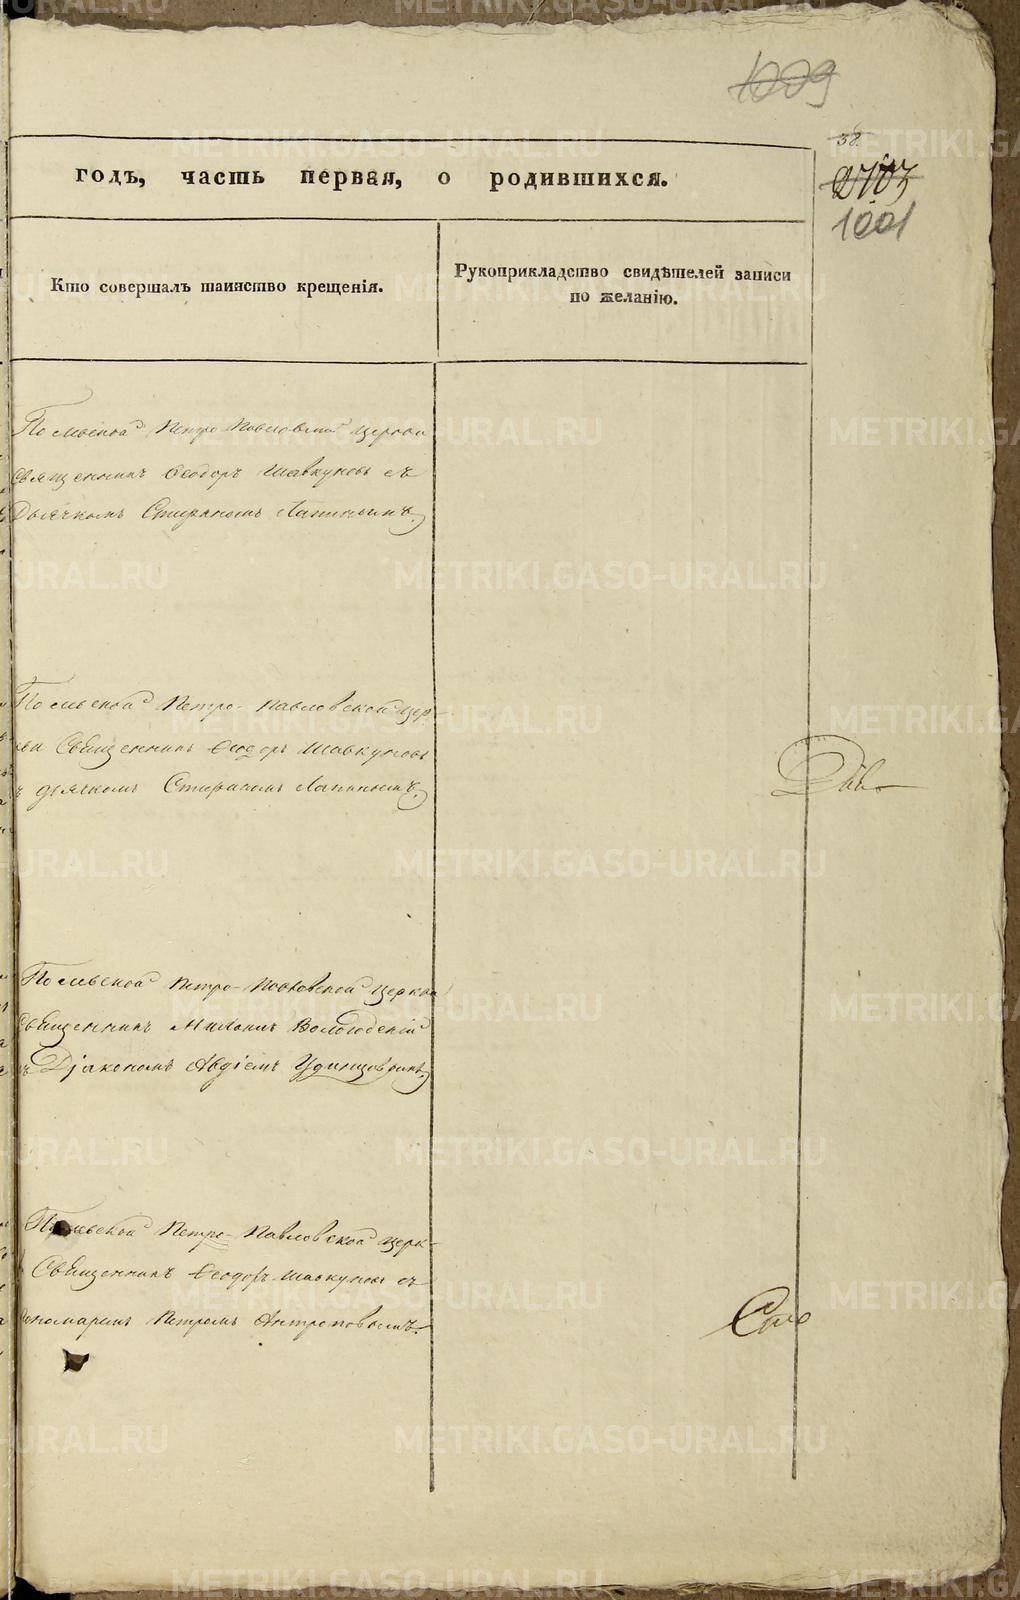 1009
38.
2703
1001
годъ, часть первая, о родившихся.
Кто совершалъ таинство крещенія.
Рукоприкладство свидѣтелей записи
по желанію.
Полевской Петро Павловской церкви
священникъ Ѳеодоръ Шавкуновъ съ
Дьячкомъ Спиридономъ Лапинымъ.
Полевской Петро-Павловской цер-
кви Священникъ Ѳеодоръ Шавкуновъ
съ дьячкомъ Лапинымъ.
Полевской Петро-Павловской Церкви
Священникъ Вологодскій
съ Діакономъ Авдіемъ Удинцовымъ.
Полевской Петро-Павловской церк-
Священникъ Ѳеодоръ Шавкуновъ съ
пономаремъ Петромъ Антроповымъ.
METRIKI.GASO-URAL.RU